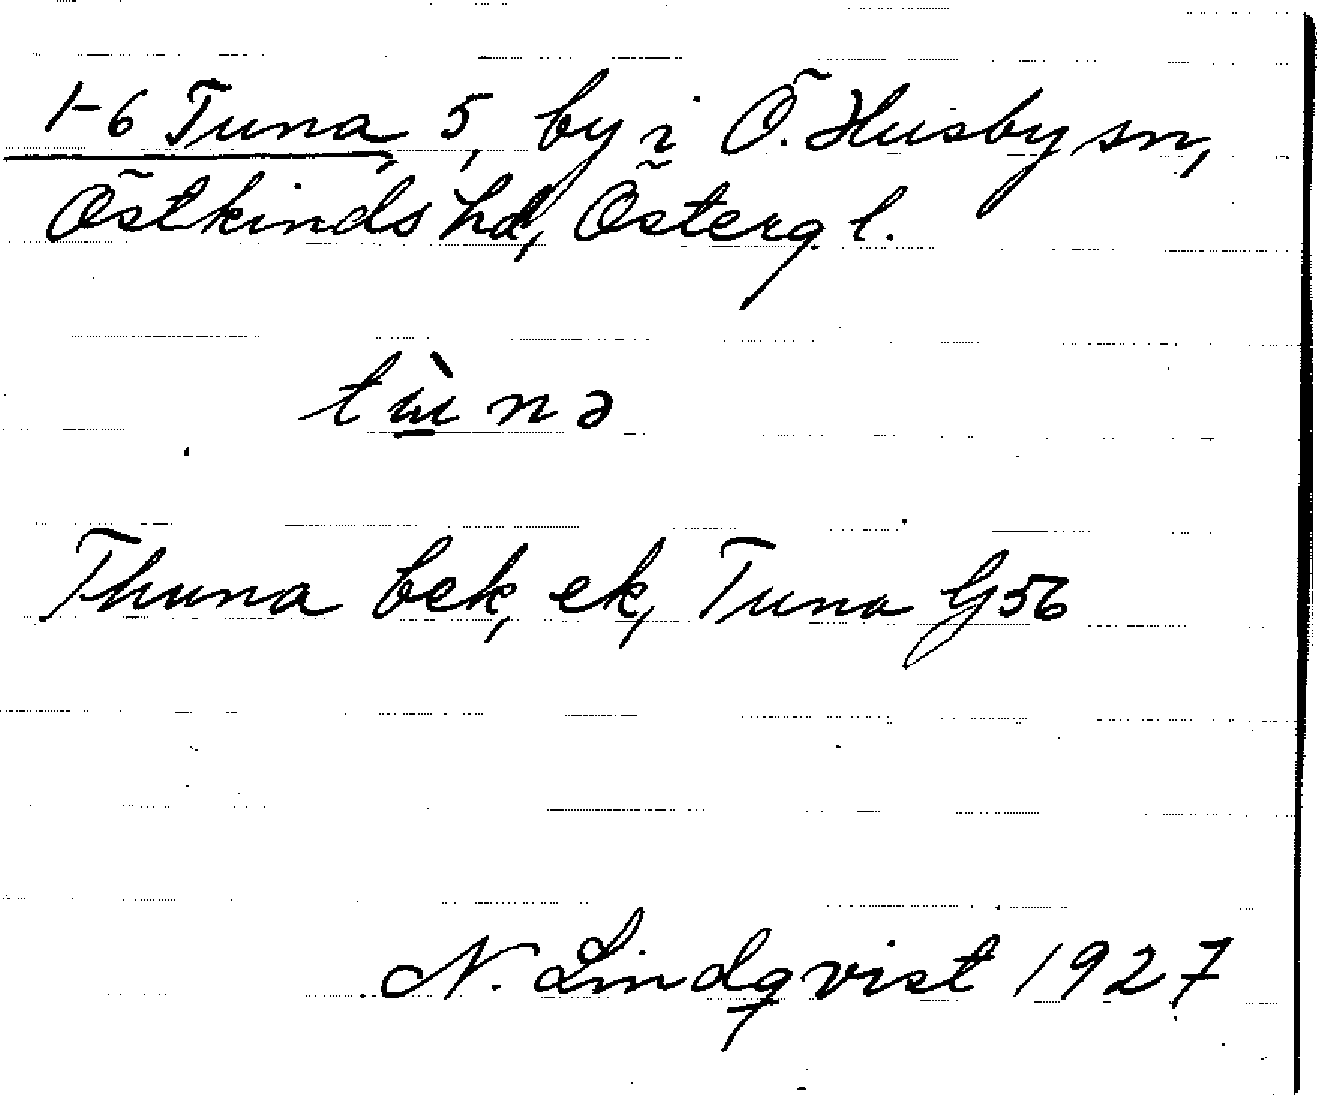 1-6 Tuna, 5, by i Ö. Husby sn,
Östkinds hd, Östergl.
tɯ̱̀nə
Thuna bek, ek, Tuna G56
N. Lindqvist 1927